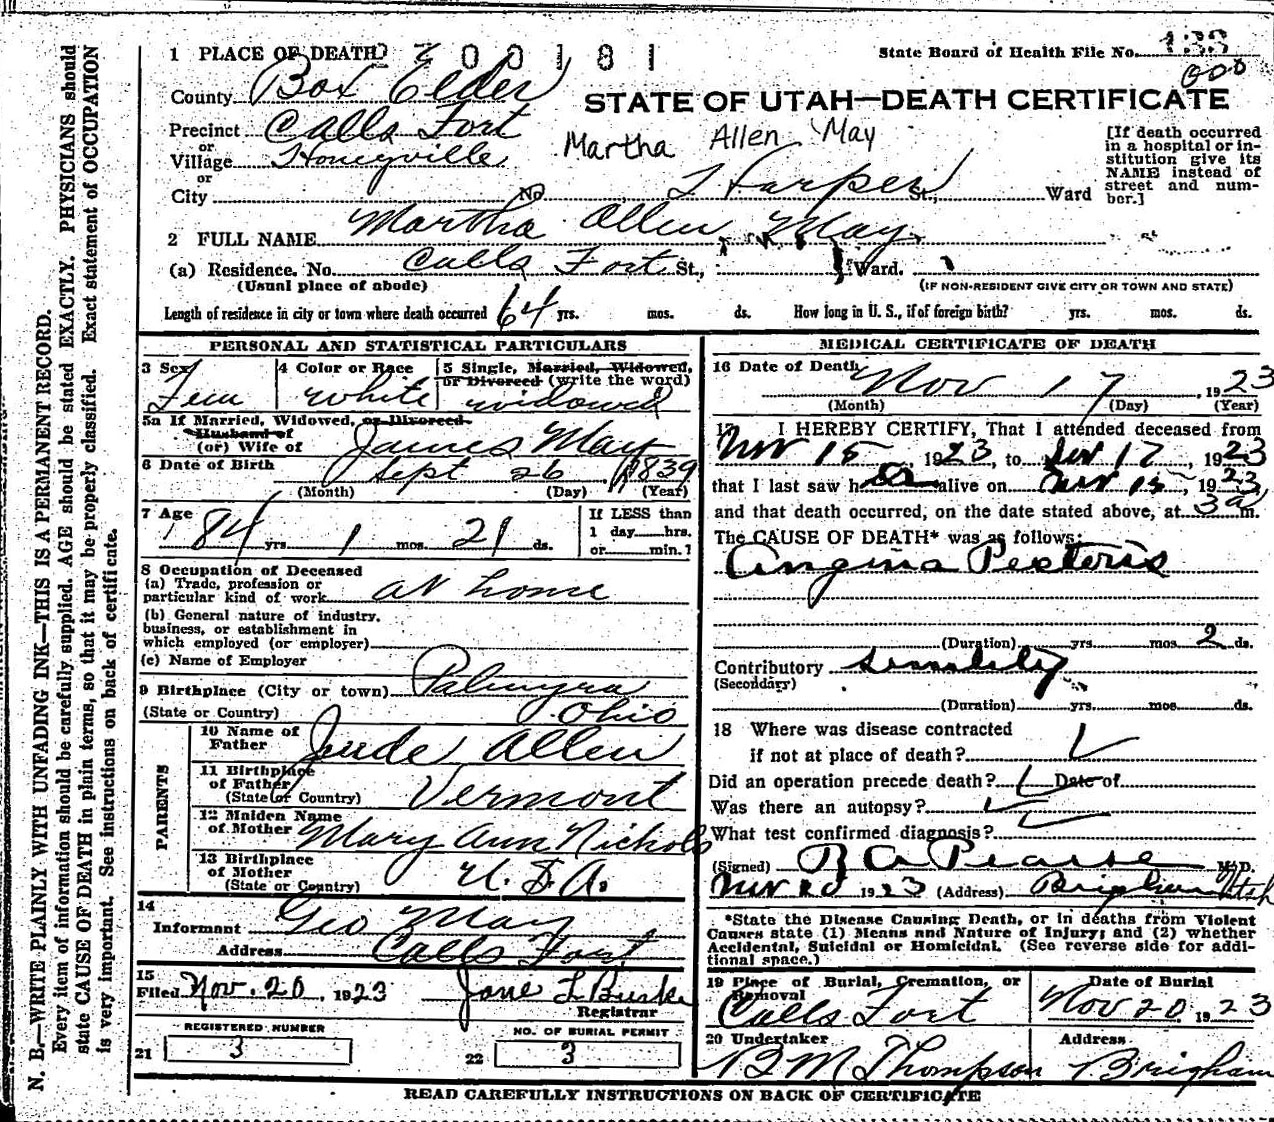 1 PLACE OF DEATH 2300181 State Board of Health File No. 133
000
County Box Elder
STATE OF UTAH—DEATH CERTIFICATE
Precinct Calls Fort
or
Village Honeyville
Martha Allen May
[If death occurred in a hospital or in-stitution give its NAME instead of street and num-ber.]
or
City No. Harper St., Ward
2 FULL NAME Martha Allen May
(a) Residence. No. Calls Fort St., Ward.
(Usual place of abode) (IF NON-RESIDENT GIVE CITY OR TOWN AND STATE)
Length of residence in city or town where death occurred 64 yrs. mos. ds. How long in U. S., if of foreign birth? yrs. mos. ds.
PERSONAL AND STATISTICAL PARTICULARS
3 Sex 4 Color or Race 5 Single, Married, Widowed,
or Divorced (write the word)
Fem white widowed
5a If Married, Widowed, or Divorced
Husband of
(or) Wife of James May
6 Date of Birth Sept 26 1839
(Month) (Day) (Year)
7 Age If LESS than
84 yrs. 1 mos. 21 ds. 1 day hrs.
or min.?
8 Occupation of Deceased
(a) Trade, profession or
particular kind of work at home
(b) General nature of industry,
business, or establishment in
which employed (or employer)
(c) Name of Employer
9 Birthplace (City or town) Palmyra
(State or Country) Ohio
PARENTS
10 Name of
Father Jude Allen
11 Birthplace
of Father
(State or Country) Vermont
12 Maiden Name
of Mother Mary Ann Nichols
13 Birthplace
of Mother
(State or Country) U. S. A.
14
Informant Geo May
Address Calls Fort
15
Filed Nov. 20, 1923 Jane L Burke
Registrar
REGISTERED NUMBER NO. OF BURIAL PERMIT
21 3 22 3
MEDICAL CERTIFICATE OF DEATH
16 Date of Death Nov 17, 1923
(Month) (Day) (Year)
17 I HEREBY CERTIFY, That I attended deceased from
Nov 15, 1923, to Nov 17, 1923
that I last saw her alive on Nov 15, 1923,
and that death occurred, on the date stated above, at 3 a m.
The CAUSE OF DEATH* was as follows:
Angina Pectoris
(Duration) yrs. mos. 2 ds.
Contributory senility
(Secondary)
(Duration) yrs. mos. ds.
18 Where was disease contracted
if not at place of death?
Did an operation precede death? Date of
Was there an autopsy?
What test confirmed diagnosis?
(Signed) R A Pearse M.D.
Nov 20 1923 (Address) Brigham Utah
*State the Disease Causing Death, or in deaths from Violent
Causes state (1) Means and Nature of Injury; and (2) whether
Accidental, Suicidal or Homicidal. (See reverse side for addi-
tional space.)
19 Place of Burial, Cremation, or Date of Burial
Removal
Calls Fort Nov 20, 1923
20 Undertaker Address
B M Thompson Brigham
READ CAREFULLY INSTRUCTIONS ON BACK OF CERTIFICATE
N. B.—WRITE PLAINLY WITH UNFADING INK—THIS IS A PERMANENT RECORD.
Every item of information should be carefully supplied. AGE should be stated EXACTLY. PHYSICIANS should
state CAUSE OF DEATH in plain terms, so that it may be properly classified. Exact statement of OCCUPATION
is very important. See instructions on back of certificate.